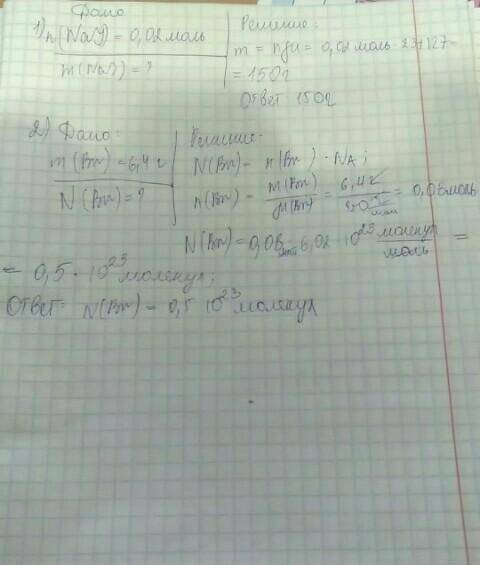 Дано
1) n(NaJ) = 0,02 моль
m(NaJ) = ?
Решение:
m = n·μ = 0,02 моль · 23+127=
= 150 г
Ответ: 150 г
2) Дано:
m(Br) = 6,4 г
N(Br) = ?
Решение:
N(Br) = n(Br) · NA;
n(Br) = m(Br)/μ(Br) = 6,4 г/80 г/моль = 0,08 моль
N(Br) = 0,08 моль · 6,02 · 10²³ молекул/моль =
= 0,5 · 10²³ молекул;
Ответ: N(Br) = 0,5 10²³ молекул